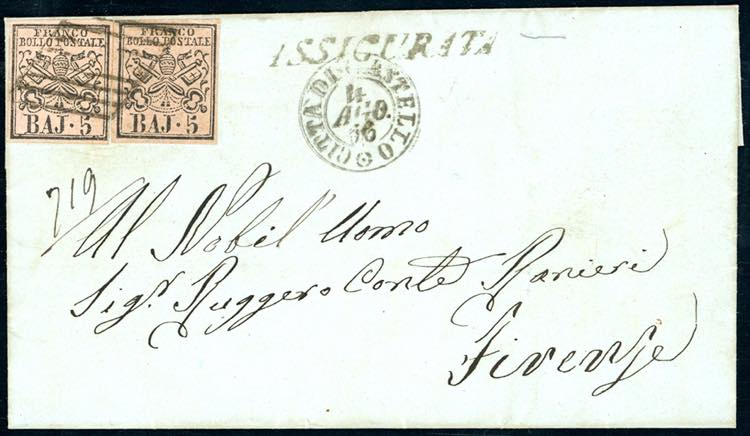 FRANCO
BOLLO POSTALE
BAJ · 5
FRANCO
BOLLO POSTALE
BAJ · 5
ASSICURATA
CITTA DI CASTELLO
4
AGO.
56
719
Al Nobil'Uomo
Sigr. Ruggero Conte Ranieri
Firenze